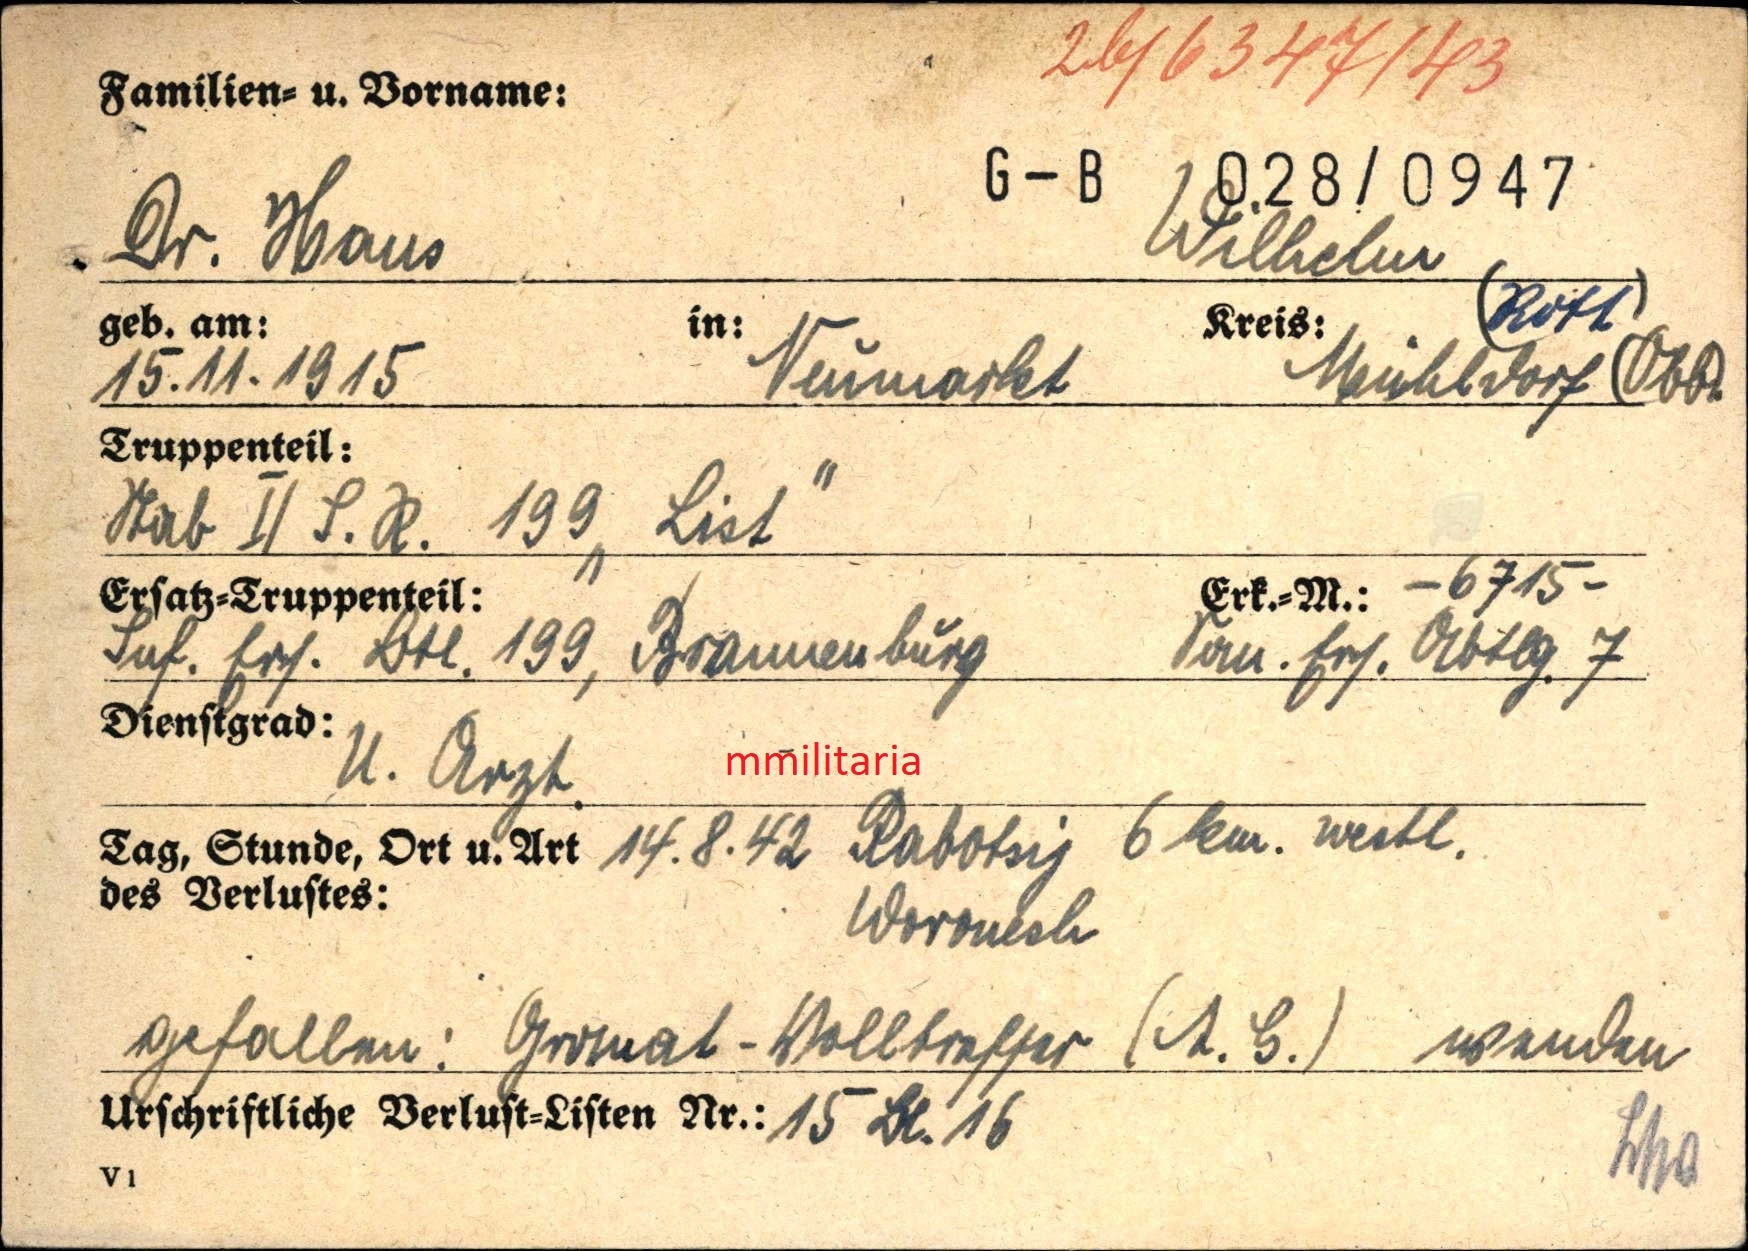 2b/6347/43
Familien- u. Vorname:
G-B 028/0947
Dr. Haus Wilhelm
geb. am: in: Kreis: (Rott)
15.11.1915 Neumarkt Mühldorf (Obb.
Truppenteil:
Stab II/ I.R. 199 „List"
Ersatz-Truppenteil: Erk.-M.: -6715-
Inf. Ers. Btl. 199, Brannenburg San. Ers. Abtlg. 7
Dienstgrad:
U. Arzt.
mmilitaria
Tag, Stunde, Ort u. Art 14.8.42 Rabotsij 6 km. westl.
des Verlustes: Woronesh
gefallen: Granat-Volltreffer (A.G.) wenden
Urschriftliche Verlust-Listen Nr.: 15 Bl. 16
V 1